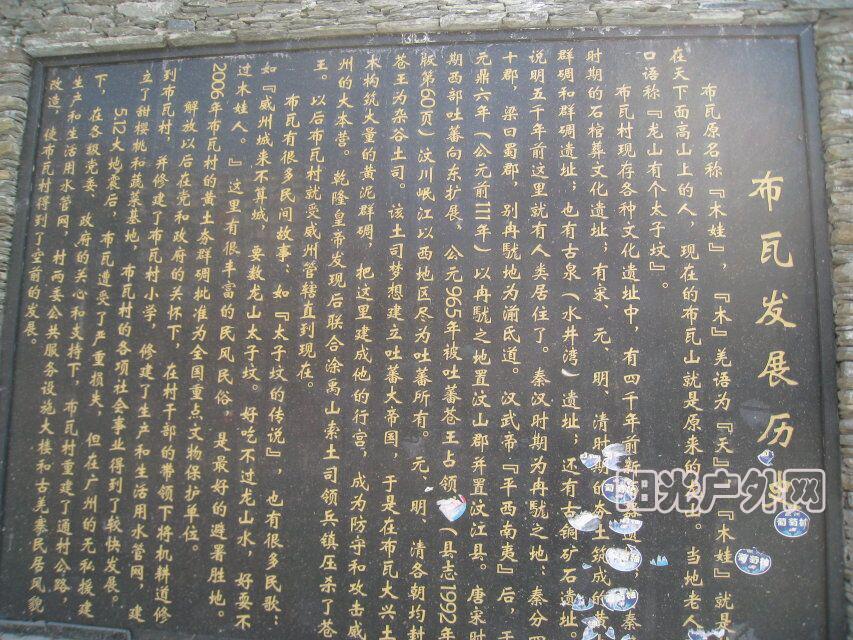 布瓦发展历
布瓦原名称『木娃』，『木』羌语为『天』『木娃』就是
在天下面高山上的人，现在的布瓦山就是原来的 当地老人
口语称『龙山有个太子坟』。
布瓦村现存各种文化遗址中，有四千年前新 遗 秦
时期的石棺葬文化遗址；有宋、元、明、清时期的夯土筑成的黄
群碉和群碉遗址；也有古泉（水井湾）遗址；还有古铜矿石遗址。
说明五千年前这里就有人类居住了。秦汉时期为冉駹之地；秦分四
十郡，梁曰蜀郡，别冉駹地为湔氐道。汉武帝『平西南夷』后，于
元鼎六年（公元前111年）以冉駹之地置汶山郡并置汶江县。唐宋时
期西部吐蕃向东扩展，公元965年被吐蕃苍王占领（县志1992年
版第60页）汶川岷江以西地区尽为吐蕃所有。元、明、清各朝均耕
苍王为杂谷土司。该土司梦想建立吐蕃大帝国，于是在布瓦大兴土
木构筑大量的黄泥群碉，把这里建成他的行宫，成为防守和攻击威
州的大本营。乾隆皇帝发现后联合涂禹山索土司领兵镇压杀了苍
王。以后布瓦村就受威州管辖直到现在。
布瓦有很多民间故事：如『太子坟的传说』，也有很多民歌：
如『威州城来不算城，要数龙山太子坟。好吃不过龙山水，好耍不
过木娃人。』这里有很丰富的民风民俗，是最好的避署胜地。
2006年布瓦村的黄土夯群碉批准为全国重点文物保护单位。
解放以后在党和政府的关怀下，在村干部的带领下将机耕道修
到布瓦村，并修建了布瓦村小学，修建了生产和生活用水管网，建
立了甜樱桃和蔬菜基地，布瓦村的各项社会事业得到了较快发展。
512大地震后，布瓦遭受了严重损失，但在广州的无私援建
下，在各级党委、政府的关心和支持下，布瓦村重建了通村公路，
生产和生活用水管网，村两委公共服务设施大楼和古羌寨民居风貌
改造，使布瓦村得到了空前的发展。
阳光户外网
葡萄
葡萄
葡萄